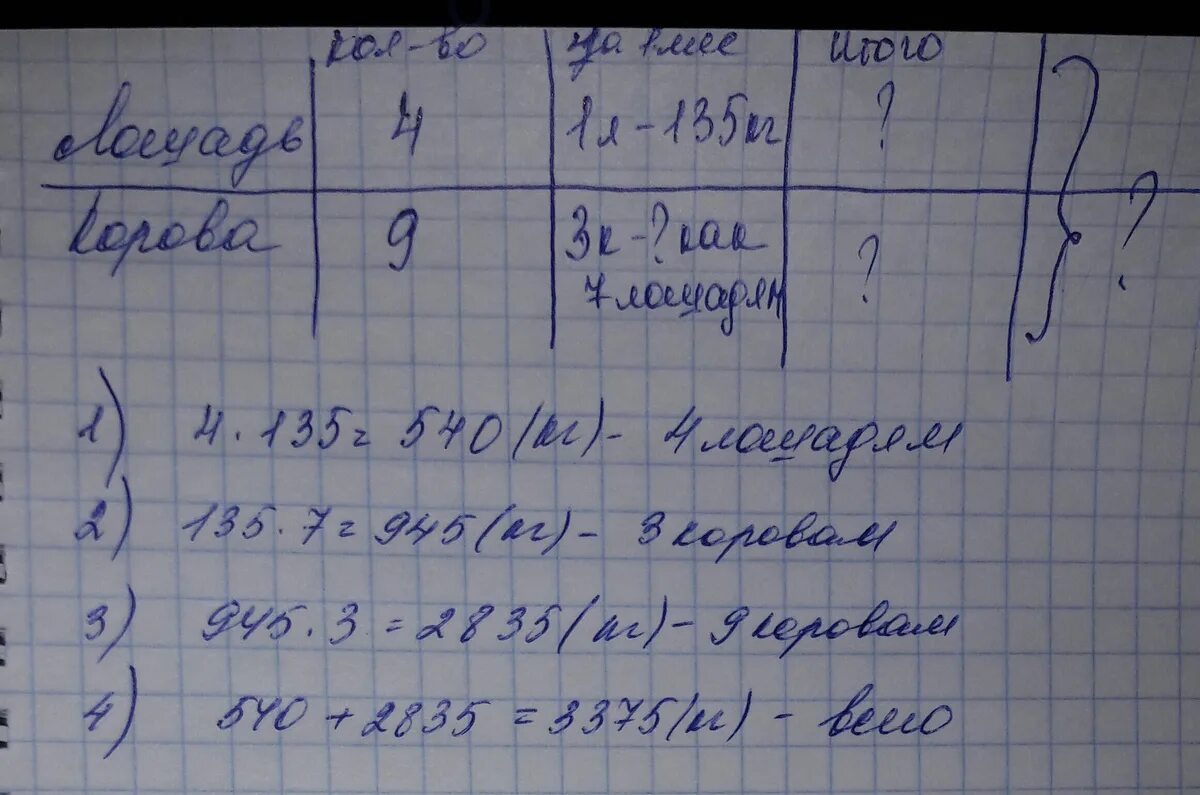 кол-во за 1 мес итого
Лошадь 4 1л - 135 кг ?
Корова 9 3к - ? как ? ?
7 лошадям
1) 4 · 135 = 540 (кг) - 4 лошадям
2) 135 · 7 = 945 (кг) - 3 коровам
3) 945 · 3 = 2835 (кг) - 9 коровам
4) 540 + 2835 = 3375 (кг) - всего